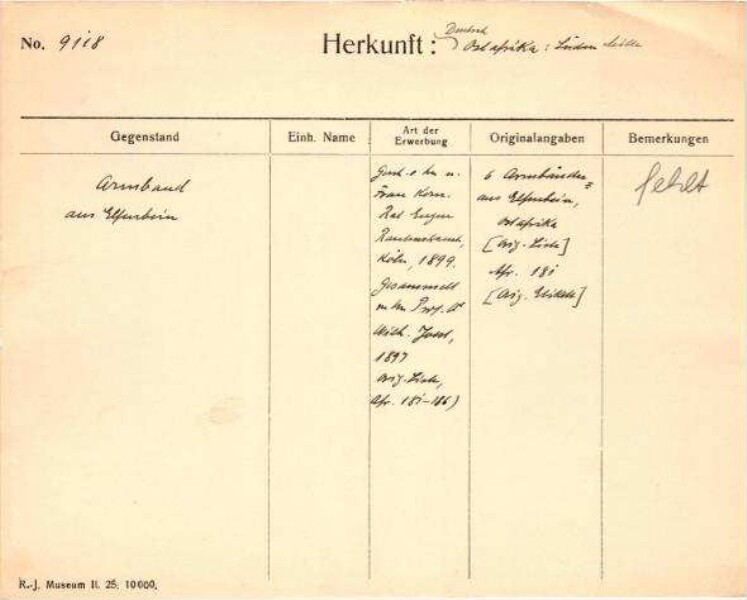 No. 9118
Herkunft: Deutsch Ostafrika: Süden
Gegenstand
Einh. Name
Art der Erwerbung
Originalangaben
Bemerkungen
Armband
aus Elfenbein
Gesch. v. Hn u.
Frau Kom.
Rat Eugen
Rautenstrauch,
Köln, 1899.
Gesammelt
v. Hn Prof. Dr
Wilh. Joest,
1897
Orig. Liste,
Afr. 181-186)
6 Armbänder
aus Elfenbein,
Ostafrika
[Orig. Liste]
Afr. 181
[Orig. Etikett]
fehlt
R.-J. Museum II. 25. 10000.